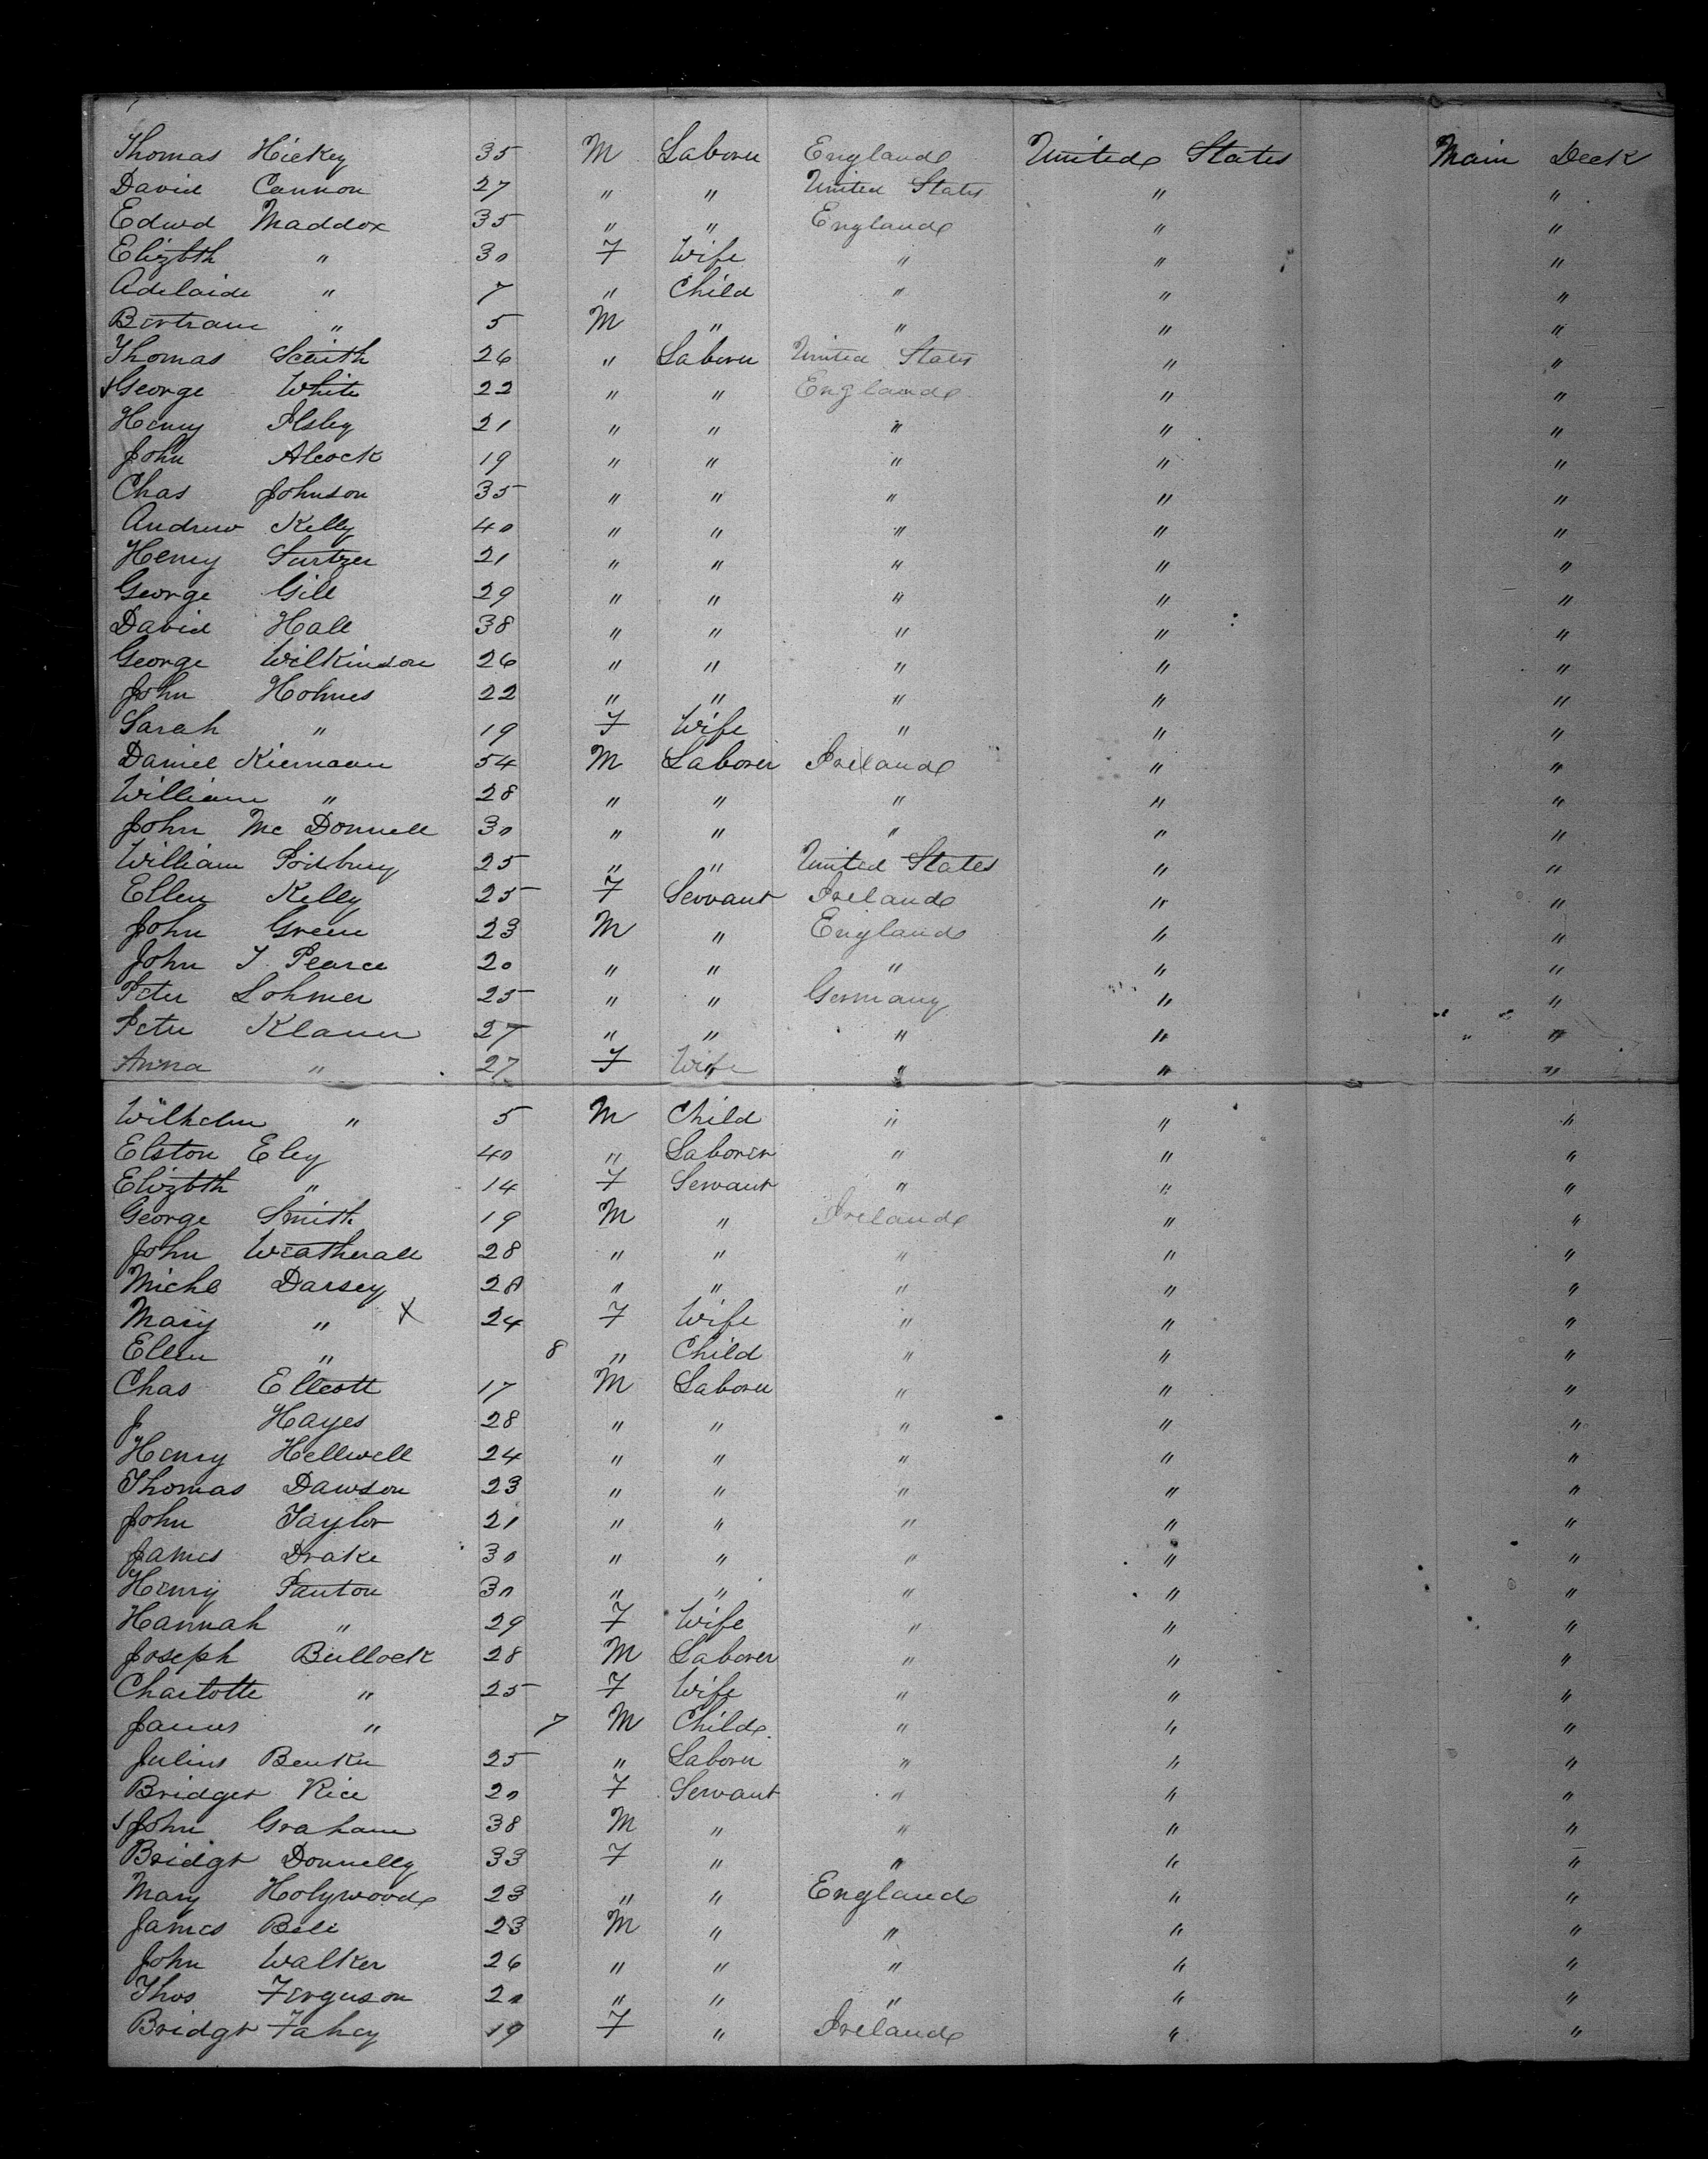 Thomas Hickey 35 M Laborer England United States Main Deck
David Cannon 27 " " United States " "
Edwd Maddox 35 " " England " "
Elizbth " 30 F Wife " " "
Adelaide " 7 " Child " " "
Bertram " 5 M " " " "
Thomas Smith 26 " Laborer United States " "
George White 22 " " England " "
Henry Ilsley 21 " " " " "
John Alcock 19 " " " " "
Chas Johnson 35 " " " " "
Andrew Kelly 40 " " " " "
Henry 21 " " " " "
George Gill 29 " " " " "
David Hall 38 " " " " "
George Wilkinson 26 " " " " "
John Holmes 22 " " " " "
Sarah " 19 F Wife " " "
Daniel Kiernaan 54 M Laborer Ireland " "
William " 28 " " " " "
John Mc Donnell 30 " " " " "
William 25 " " United States " "
Ellen Kelly 25 F Servant Ireland " "
John Green 23 M " England " "
John T Pearce 20 " " " " "
Peter Lohmer 25 " " Germany " "
Peter Klaner 27 " " " " "
Anna " 27 F Wife " " "
Wilhelm " 5 M Child " " "
Elston Eley 40 " Laborer " " "
Elizbth " 14 F Servant " " "
George Smith 19 M " Ireland " "
John Weatherall 28 " " " " "
Michl Darsey 28 " " " " "
Mary " X 24 F Wife " " "
Ellen " 8 " Child " " "
Chas Ellcott 17 M Laborer " " "
J Hayes 28 " " " " "
Henry Hellwell 24 " " " " "
Thomas Dawson 23 " " " " "
John Taylor 21 " " " " "
James Drake 30 " " " " "
Henry Panton 30 " " " " "
Hannah " 29 F Wife " " "
Joseph Bullock 28 M Laborer " " "
Charlotte " 25 F Wife " " "
James " 7 M Child " " "
Julius Benker 25 " Laborer " " "
Bridget Rice 20 F Servant " " "
John Graham 38 M " " " "
Bridgt Donnelly 33 F " " " "
Mary Holywood 23 " " England " "
James Bell 23 M " " " "
John Walker 26 " " " " "
Thos Ferguson 20 " " " " "
Bridgt Fahey 19 F " Ireland " "